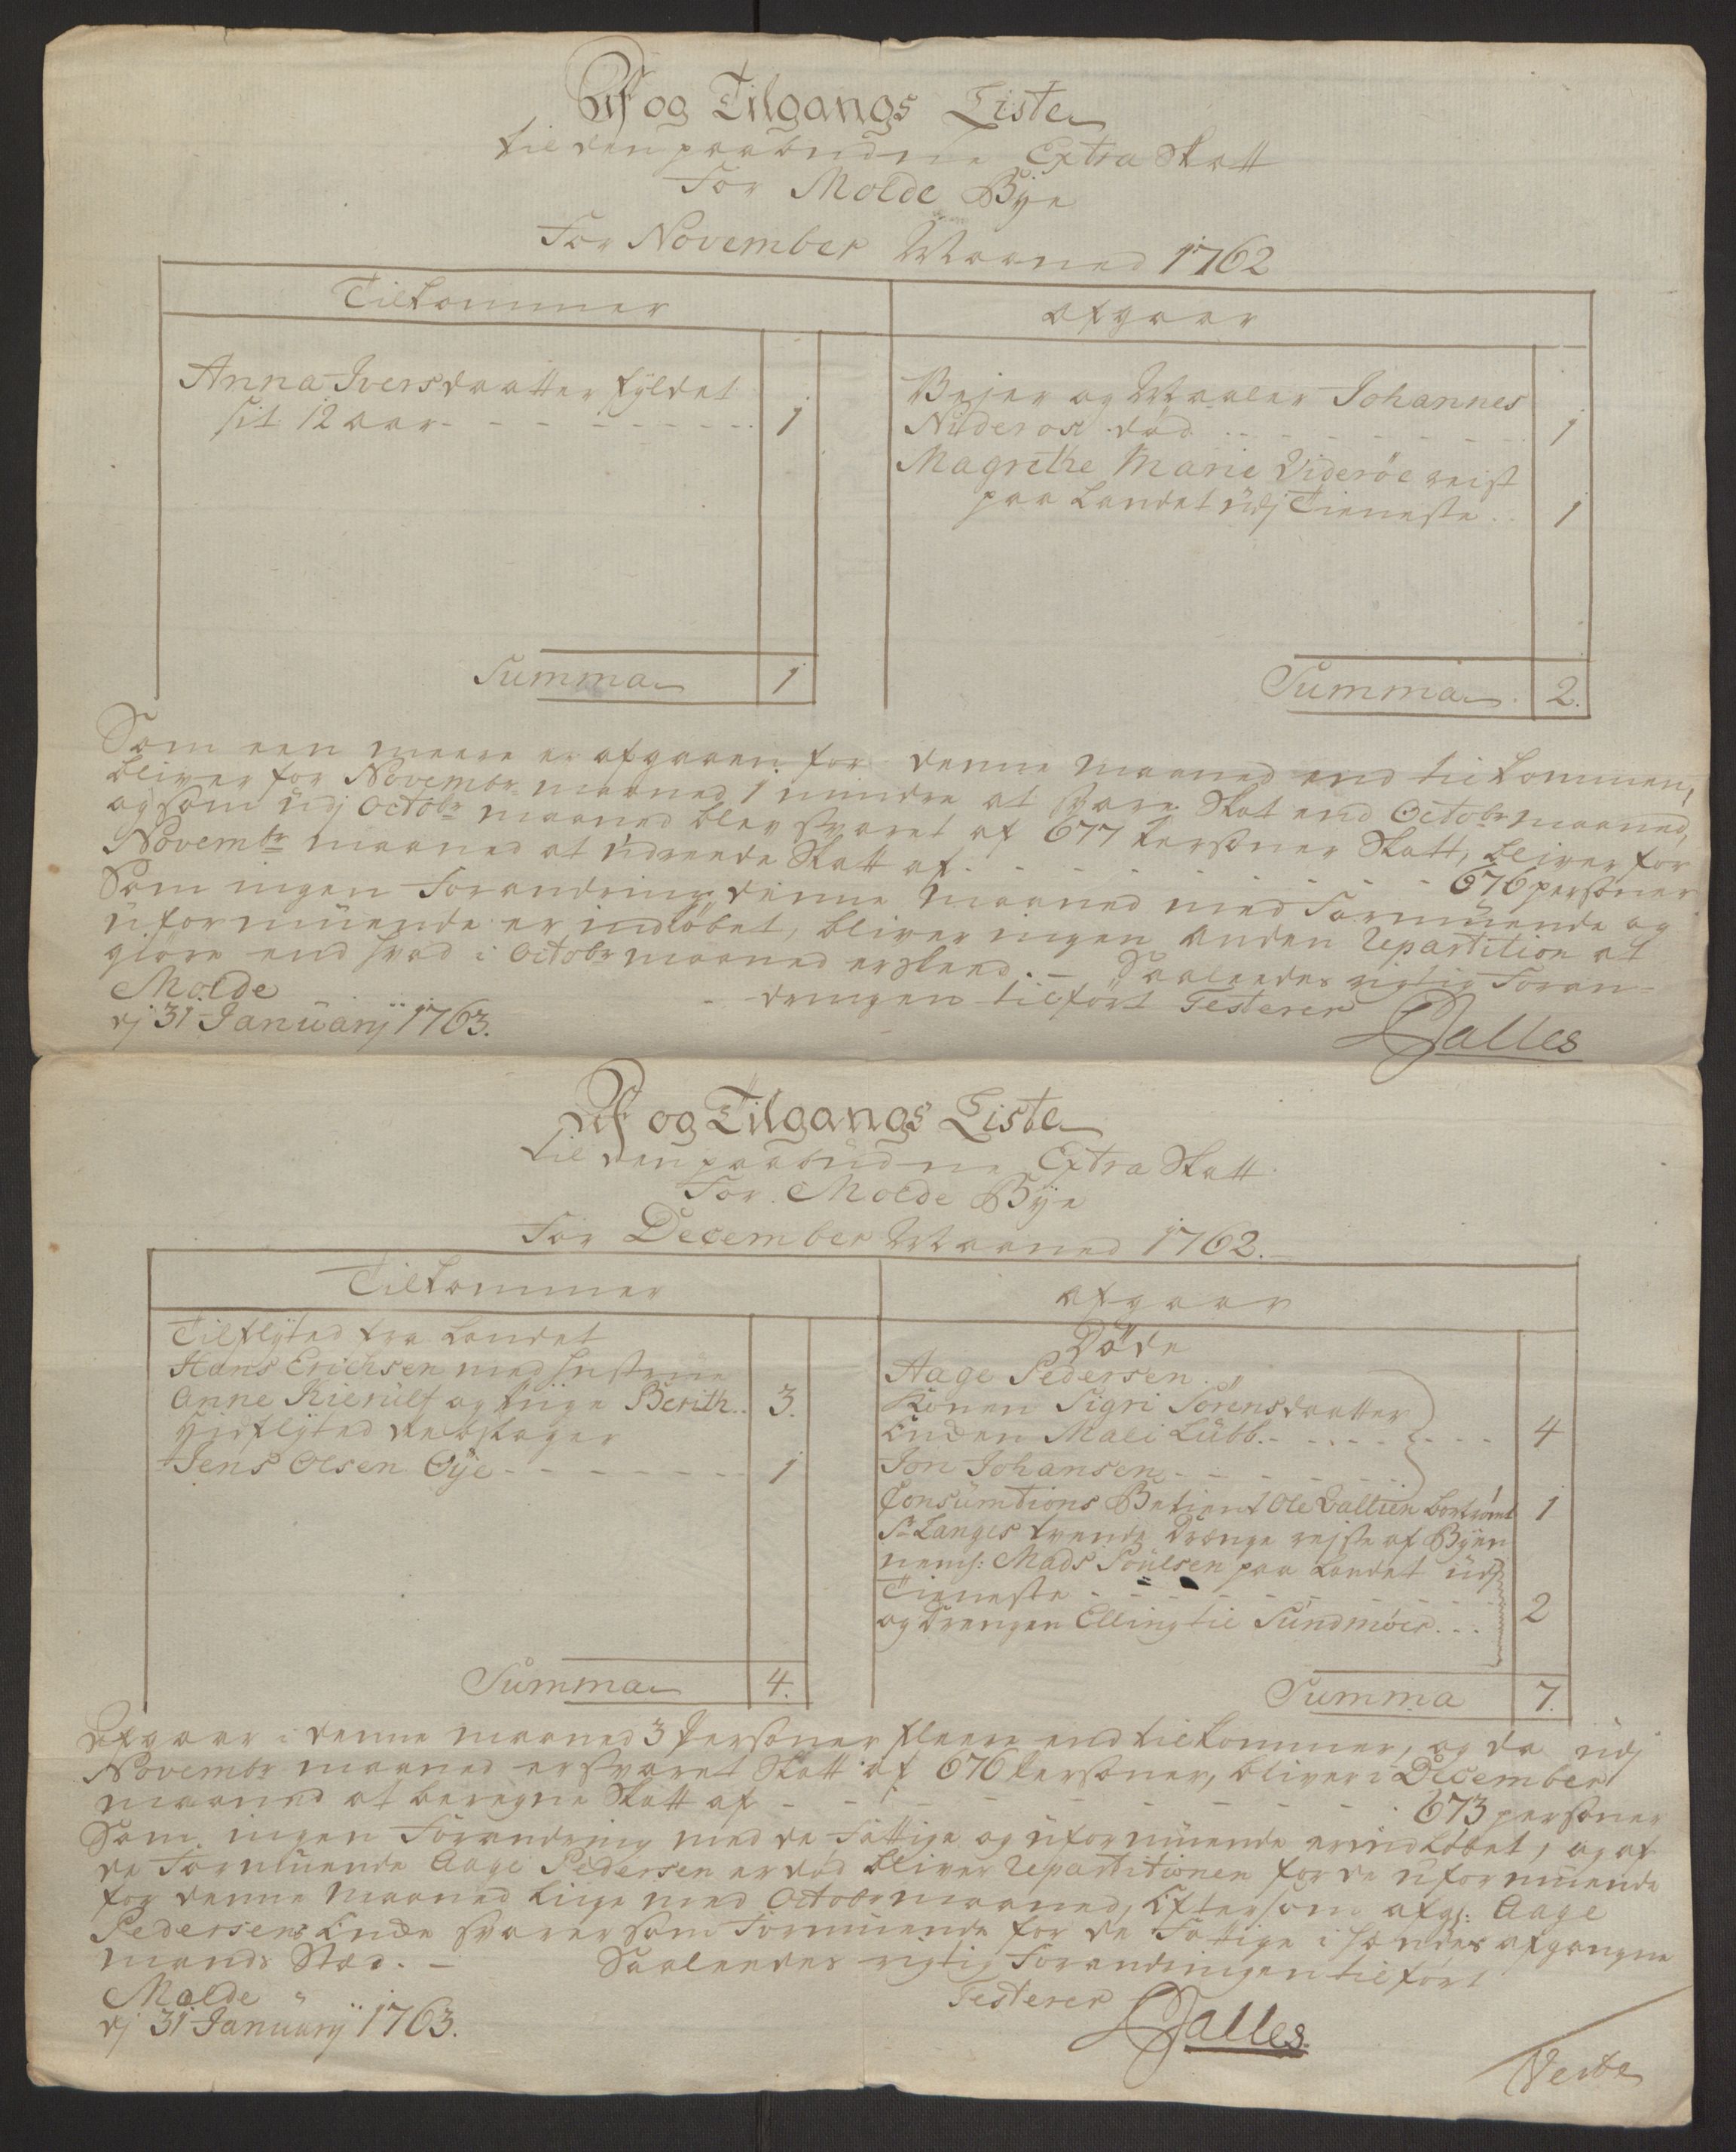 Af og Tilgangs Liste
til den paabudne Extra Skatt
For Molde Bÿe
For November Maaned 1762
Tilkommer
afgaar
Anna Iversdaatter fÿldet
sit 12 aar - - - - - - - - 1
Vejer og Maaler Johannes
Nideros død - - - - - - - 1
Magrethe Marie Viderøe reist
paa Landet udj Tieneste . . 1
Summa 1
Summa 2.
Som een meere er afgaaen for denne maaned end tilkommen,
bliver for Novembr maaned 1 mindre at svare Skat end Octobr maaned,
og som udj Octobr maaned blev svaret af 677 Personer Skatt, bliver for
Novembr maaned at udreede Skatt af - - - - - - - - 676 personer
Som ingen Forandring denne Maaned med Formuende og
uformuende er indløbet, bliver ingen anden Repartition at
giøre end hvad i Octobr maaned er skeed. - Saaledes rigtig Foran-
dringen tilført Testerer
Molde
dj 31 Januarij 1763.
Dalles
Af og Tilgangs Liste
til den paabudne Extra Skatt
For Molde Bÿe
For December Maaned 1762.
Tilkommer
afgaar
Tilflÿted fra Landet
Hans Erichsen med Hustrue
Anne Kierulf og Piige Berith . . 3.
Hidflÿted Rebslager
Jens Olsen Øÿe - - - - - - - 1
Døde
Aage Pedersen.
Konen Sigri Sørensdaatter
Enken Mali Lubb. - - - - - - - 4
Jon Johansen - - - - - -
Consumtions Betient Ole Dallien bortrømt 1
Sr Langes tvende Drenge rejste af Bÿen
neml: Mads Poulsen paa Landet udj
Tieneste - - - - - - - - - 2
og Drengen Elling til Sundmøer . . .
Summa 4.
Summa 7.
Afgaar i denne maaned 3 Personer fleere end tilkommer, og da udj
Novembr maaned er svaret Skatt af 676 Personer, bliver i December
maaned at beregne Skatt af - - - - - - - - 673 personer
Som ingen Forandring med de Fattige og uformuende er indløbet, og af
de Formuende Aage Pedersen er død bliver Repartitionen for de uformuende
for denne Maaned liige med Octobr maaned, Eftersom afg: Aage
Pedersens Enke svarer som Formuende for de Fattige i hendes afgangne
mands Sted. - Saaledes rigtig Forandringen tilført
Testerer
Molde
dj 31 Januarij 1763.
Dalles
Verte